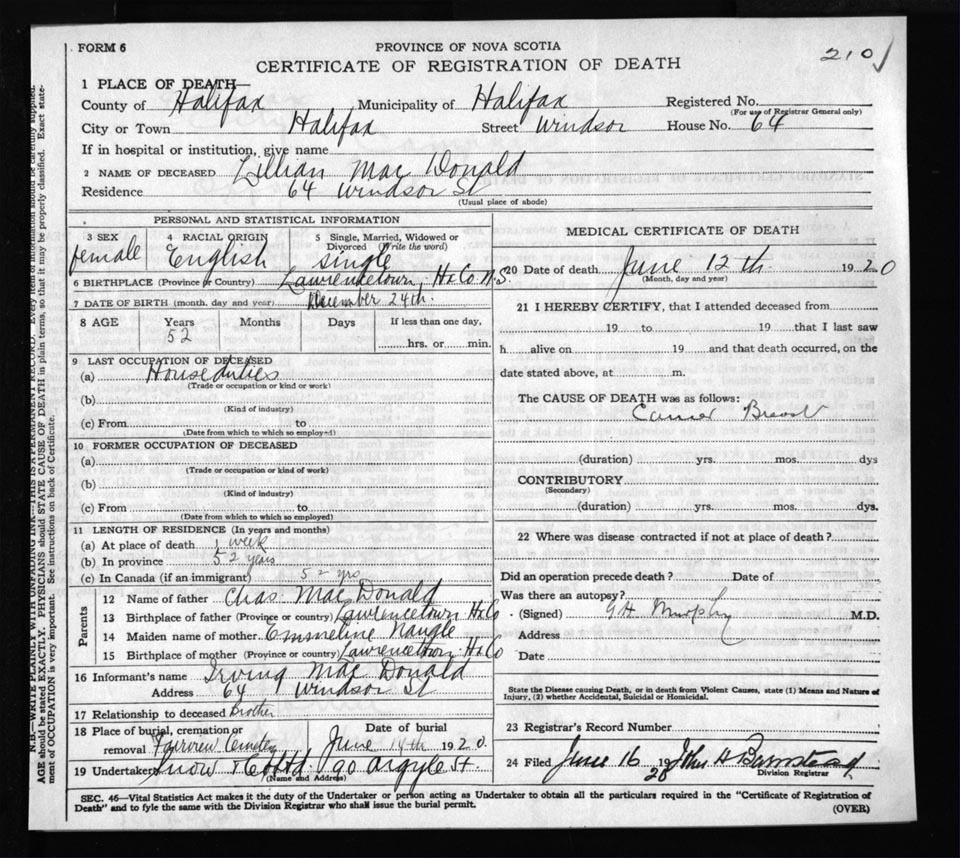 FORM 6
PROVINCE OF NOVA SCOTIA
210
CERTIFICATE OF REGISTRATION OF DEATH
1 PLACE OF DEATH
County of Halifax Municipality of Halifax Registered No.
(For use of Registrar General only)
City or Town Halifax Street Windsor House No. 64
If in hospital or institution, give name
2 NAME OF DECEASED Lillian Mac Donald
Residence 64 Windsor St
(Usual place of abode)
PERSONAL AND STATISTICAL INFORMATION
3 SEX 4 RACIAL ORIGIN 5 Single, Married, Widowed or Divorced (Write the word)
female English single
6 BIRTHPLACE (Province or Country) Lawrencetown, Hx Co N.S.
7 DATE OF BIRTH (month, day and year) December 24th.
8 AGE Years Months Days If less than one day,
52 hrs. or min.
9 LAST OCCUPATION OF DECEASED
(a) House duties
(Trade or occupation or kind or work)
(b)
(Kind of industry)
(c) From to
(Date from which to which so employed)
10 FORMER OCCUPATION OF DECEASED
(a)
(Trade or occupation or kind of work)
(b)
(Kind of industry)
(c) From to
(Date from which to which so employed)
11 LENGTH OF RESIDENCE (In years and months)
(a) At place of death 1 week
(b) In province 52 years
(c) In Canada (if an immigrant) 52 yrs
Parents
12 Name of father Chas Mac Donald
13 Birthplace of father (Province or country) Lawrencetown Hx Co
14 Maiden name of mother Emmeline Naugle
15 Birthplace of mother (Province or country) Lawrencetown Hx Co
16 Informant's name Irving Mac Donald
Address 64 Windsor St
17 Relationship to deceased Brother
18 Place of burial, cremation or removal Fairview Cemetery
Date of burial
June 14th 1920.
19 Undertaker Snow & Co Ltd. 90 Argyle St.
(Name and Address)
MEDICAL CERTIFICATE OF DEATH
20 Date of death June 12th 1920
(Month, day and year)
21 I HEREBY CERTIFY, that I attended deceased from
19 to 19 that I last saw
h alive on 19 and that death occurred, on the
date stated above, at m.
The CAUSE OF DEATH was as follows:
Cancer Breast
(duration) yrs. mos. dys
CONTRIBUTORY
(Secondary)
(duration) yrs. mos. dys.
22 Where was disease contracted if not at place of death?
Did an operation precede death? Date of
Was there an autopsy?
(Signed) G H Murphy M.D.
Address
Date
State the Disease causing Death, or in death from Violent Causes, state (1) Means and Nature of
Injury, (2) whether Accidental, Suicidal or Homicidal.
23 Registrar's Record Number
24 Filed June 16 1920 John H Barnstead
Division Registrar
SEC. 46—Vital Statistics Act makes it the duty of the Undertaker or person acting as Undertaker to obtain all the particulars required in the "Certificate of Registration of
Death" and to fyle same with the Division Registrar who shall issue the burial permit.
(OVER)
N.B.—WRITE PLAINLY WITH UNFADING INK—THIS IS A PERMANENT RECORD. Every item of information should be carefully supplied.
AGE should be stated EXACTLY. PHYSICIANS should STATE CAUSE OF DEATH in plain terms, so that it may be properly classified. Exact state-
ment of OCCUPATION is very important. See instructions on back of Certificate.